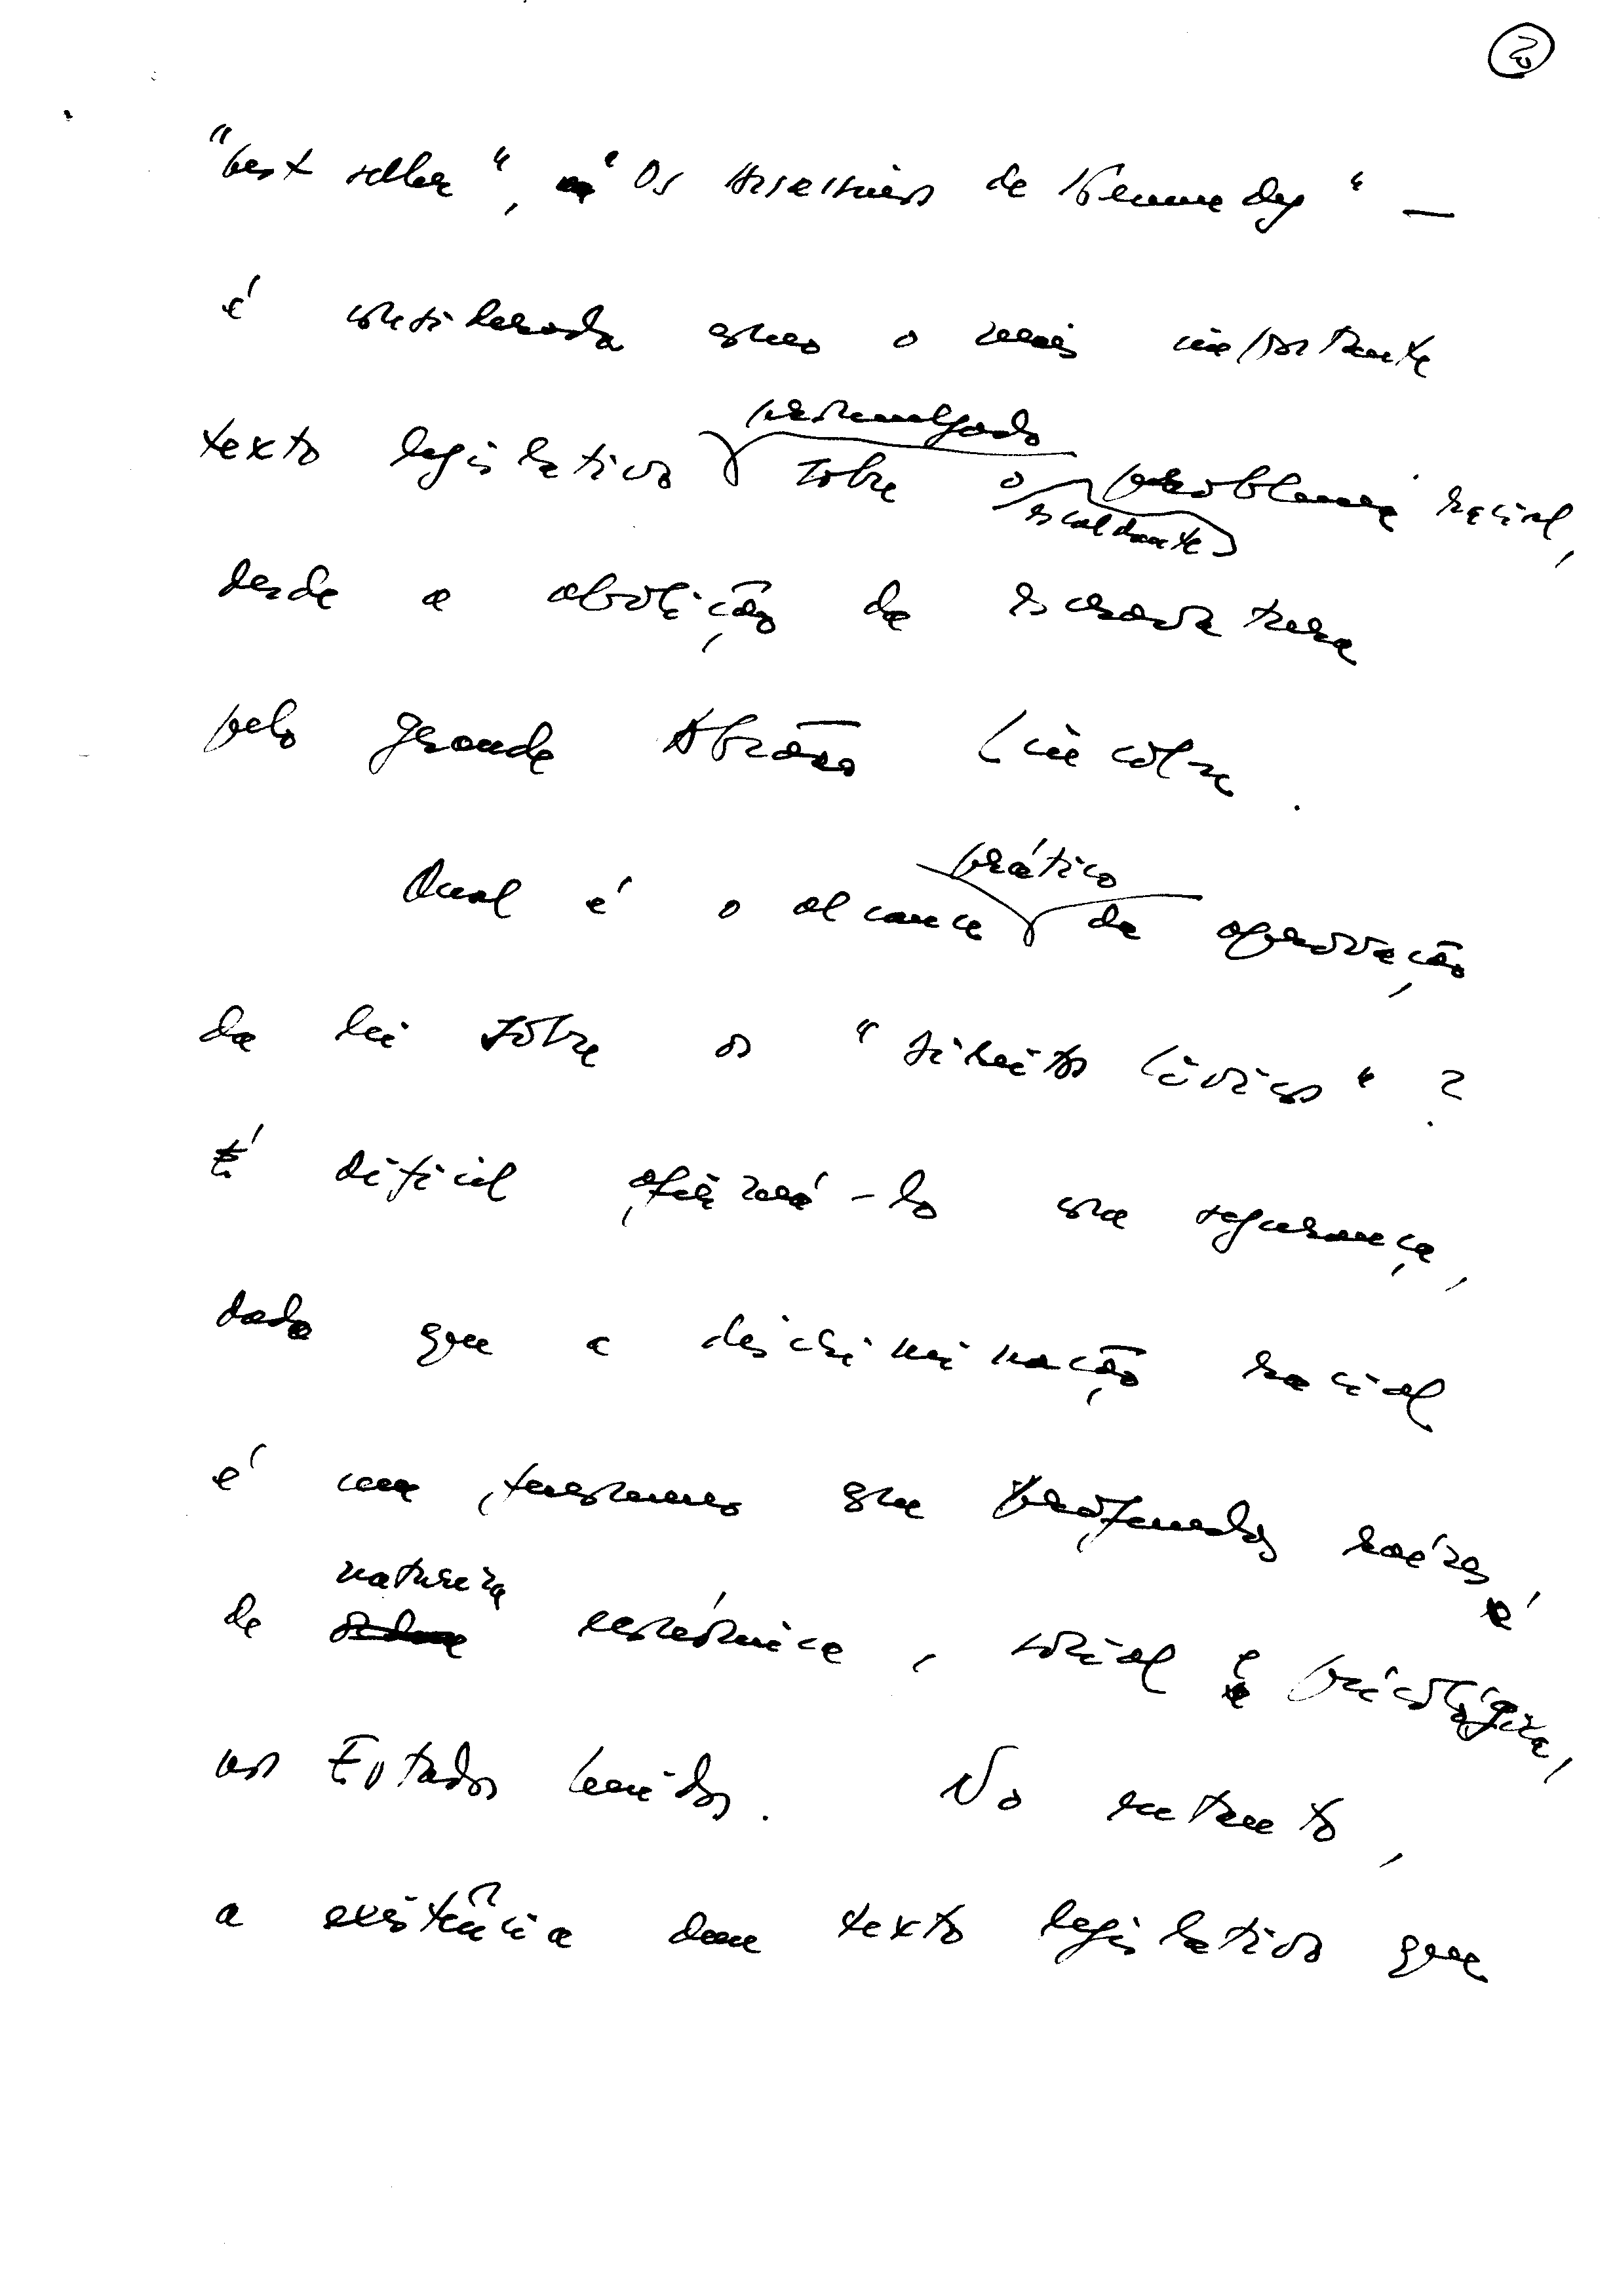 2
"best seller", "Os Assassinos de Kennedy" —
é considerada como o mais importante
promulgado
texto legislativo sobre o problema racial,
escaldante
desde a abolição da escravatura
pelo grande Abraão Lincoln.
prático
Qual é o alcance da aprovação
da lei sôbre os "direitos cívicos"?
É difícil afirmá-lo com segurança,
dado que a discriminação racial
é um fenómeno que profundas raízes
natureza é
de económica, social e psicológica,
nos Estados Unidos. No entanto,
a existência dum texto legislativo que